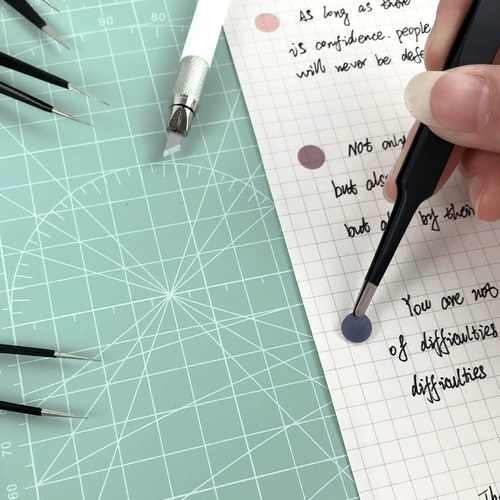 90
80
As long as there
is confidence. people
will never be
Not only
but
but by their
You are not
of difficulties
difficulties
70
60